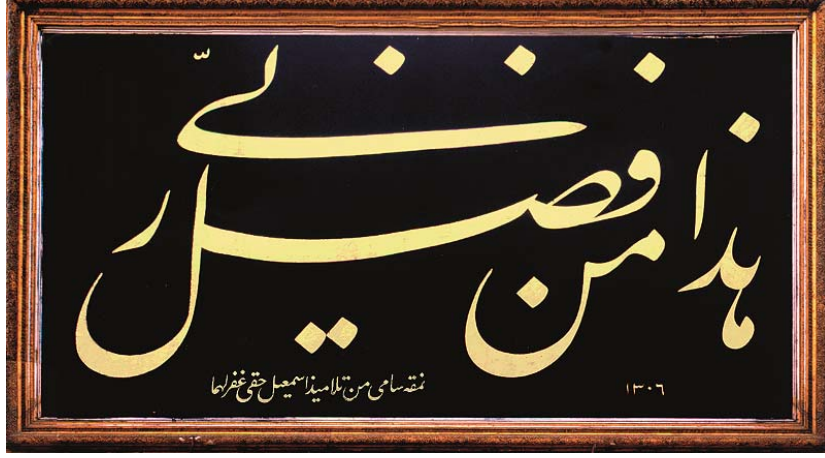 هذا من فضل ربّي
نمقه سامى من تلاميذ اسمعيل حقى غفر لهما
١٣٠٦